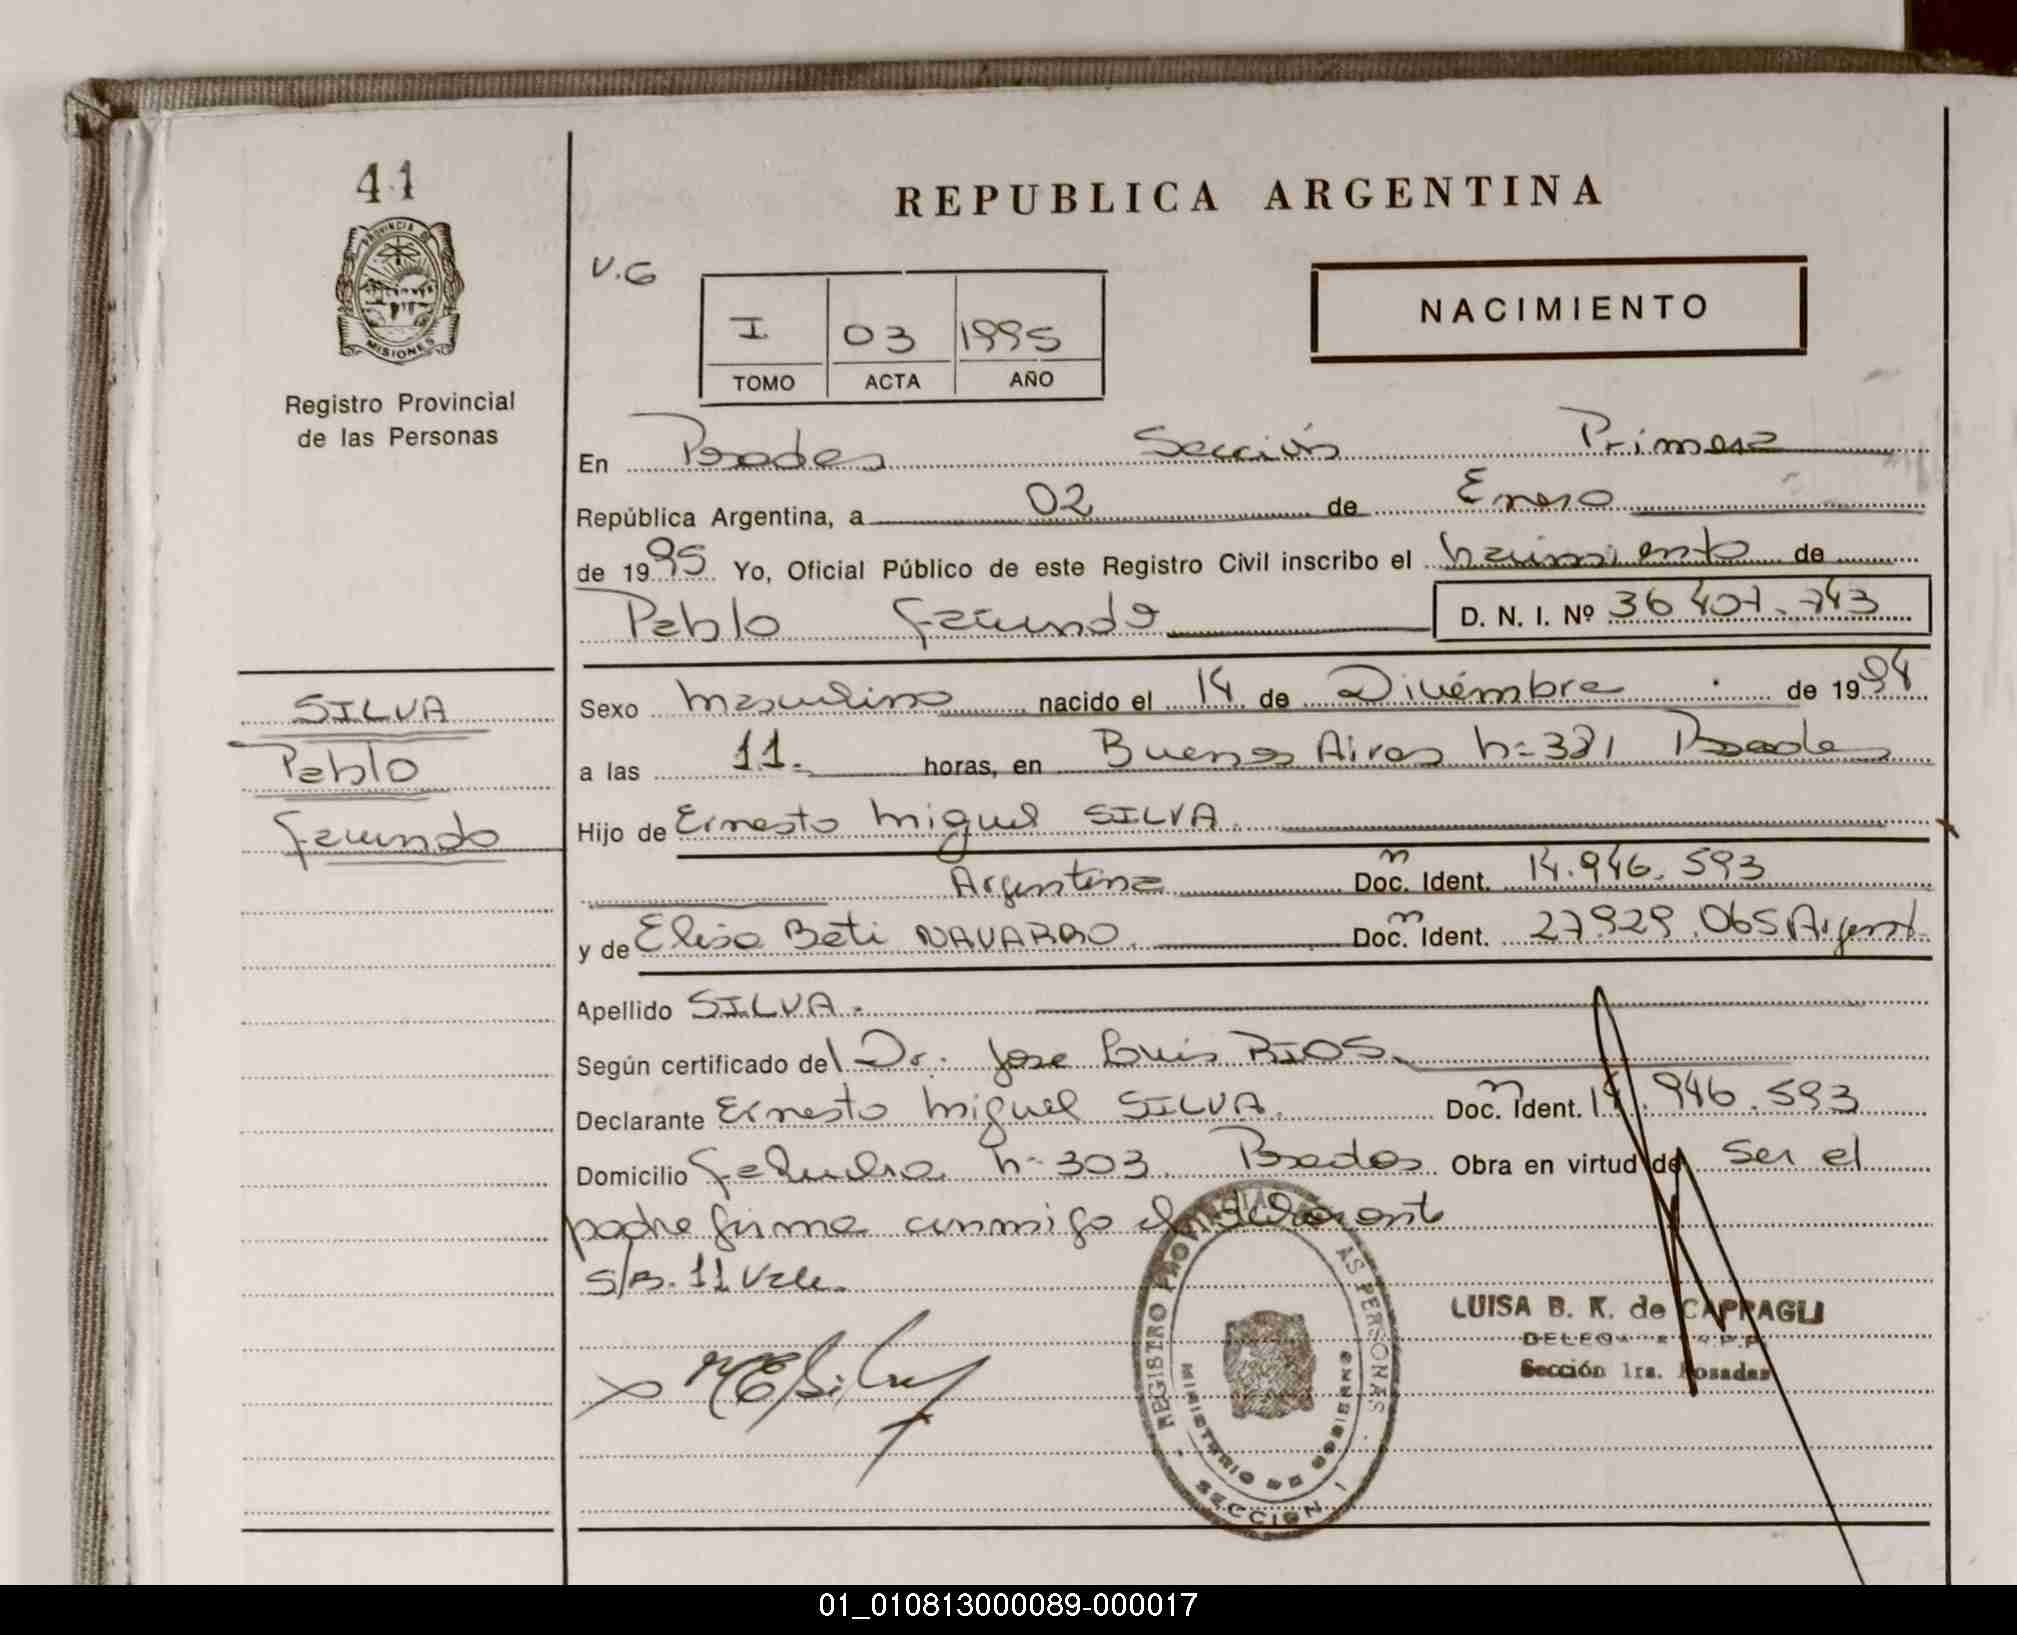 41
PROVINCIA DE
MISIONES
Registro Provincial
de las Personas
REPUBLICA ARGENTINA
V.G
NACIMIENTO
I 03 1995
TOMO ACTA AÑO
En Posadas Sección Primera
República Argentina, a 02 de Enero
de 1995 Yo, Oficial Público de este Registro Civil inscribo el nacimiento de
Pablo Facundo D. N. I. Nº 36.407.743
SILVA
Pablo
Facundo
Sexo masculino nacido el 14 de Diciembre de 1994
a las 11. horas, en Buenos Aires n= 381 Posadas
Hijo de Ernesto Miguel SILVA.
Argentina Doc. Ident. 14.946.593
y de Elisa Beti NAVARRO. Doc. Ident. 27.929.065 Argent.
Apellido SILVA.
Según certificado del Dr. Jose Luis RIOS.
Declarante Ernesto Miguel SILVA. Doc. Ident. 14.946.593
Domicilio n= 303 Posadas Obra en virtud de Ser el
padre firma conmigo el declarante
S/B. 11 Vale.
REGISTRO PROVINCIAL DE LAS PERSONAS
MINISTERIO DE GOBIERNO
SECCION I
LUISA B. K. de CAPPAGLI
Sección 1ra. Posadas
01_010813000089-000017